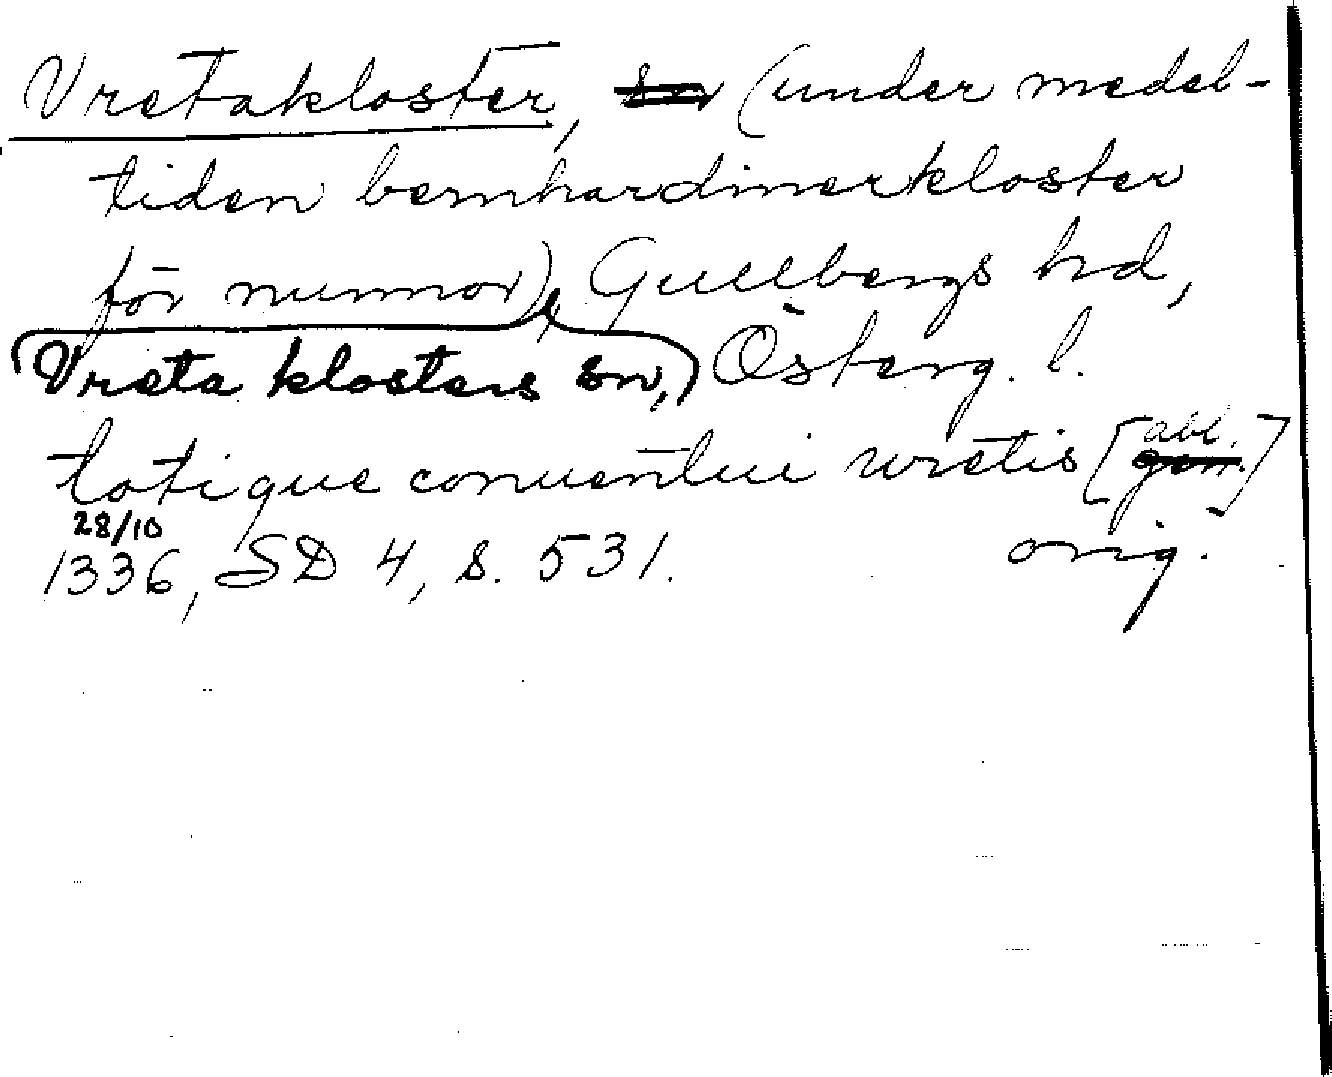 Vretakloster, sn (under medel-
tiden bernhardinerkloster
för nunnor), Gullbergs hd,
Vreta klosters sn, Österg. l.
totique conuentui wretis [abl. gen.]
28/10
1336, SD 4, s. 531. orig.